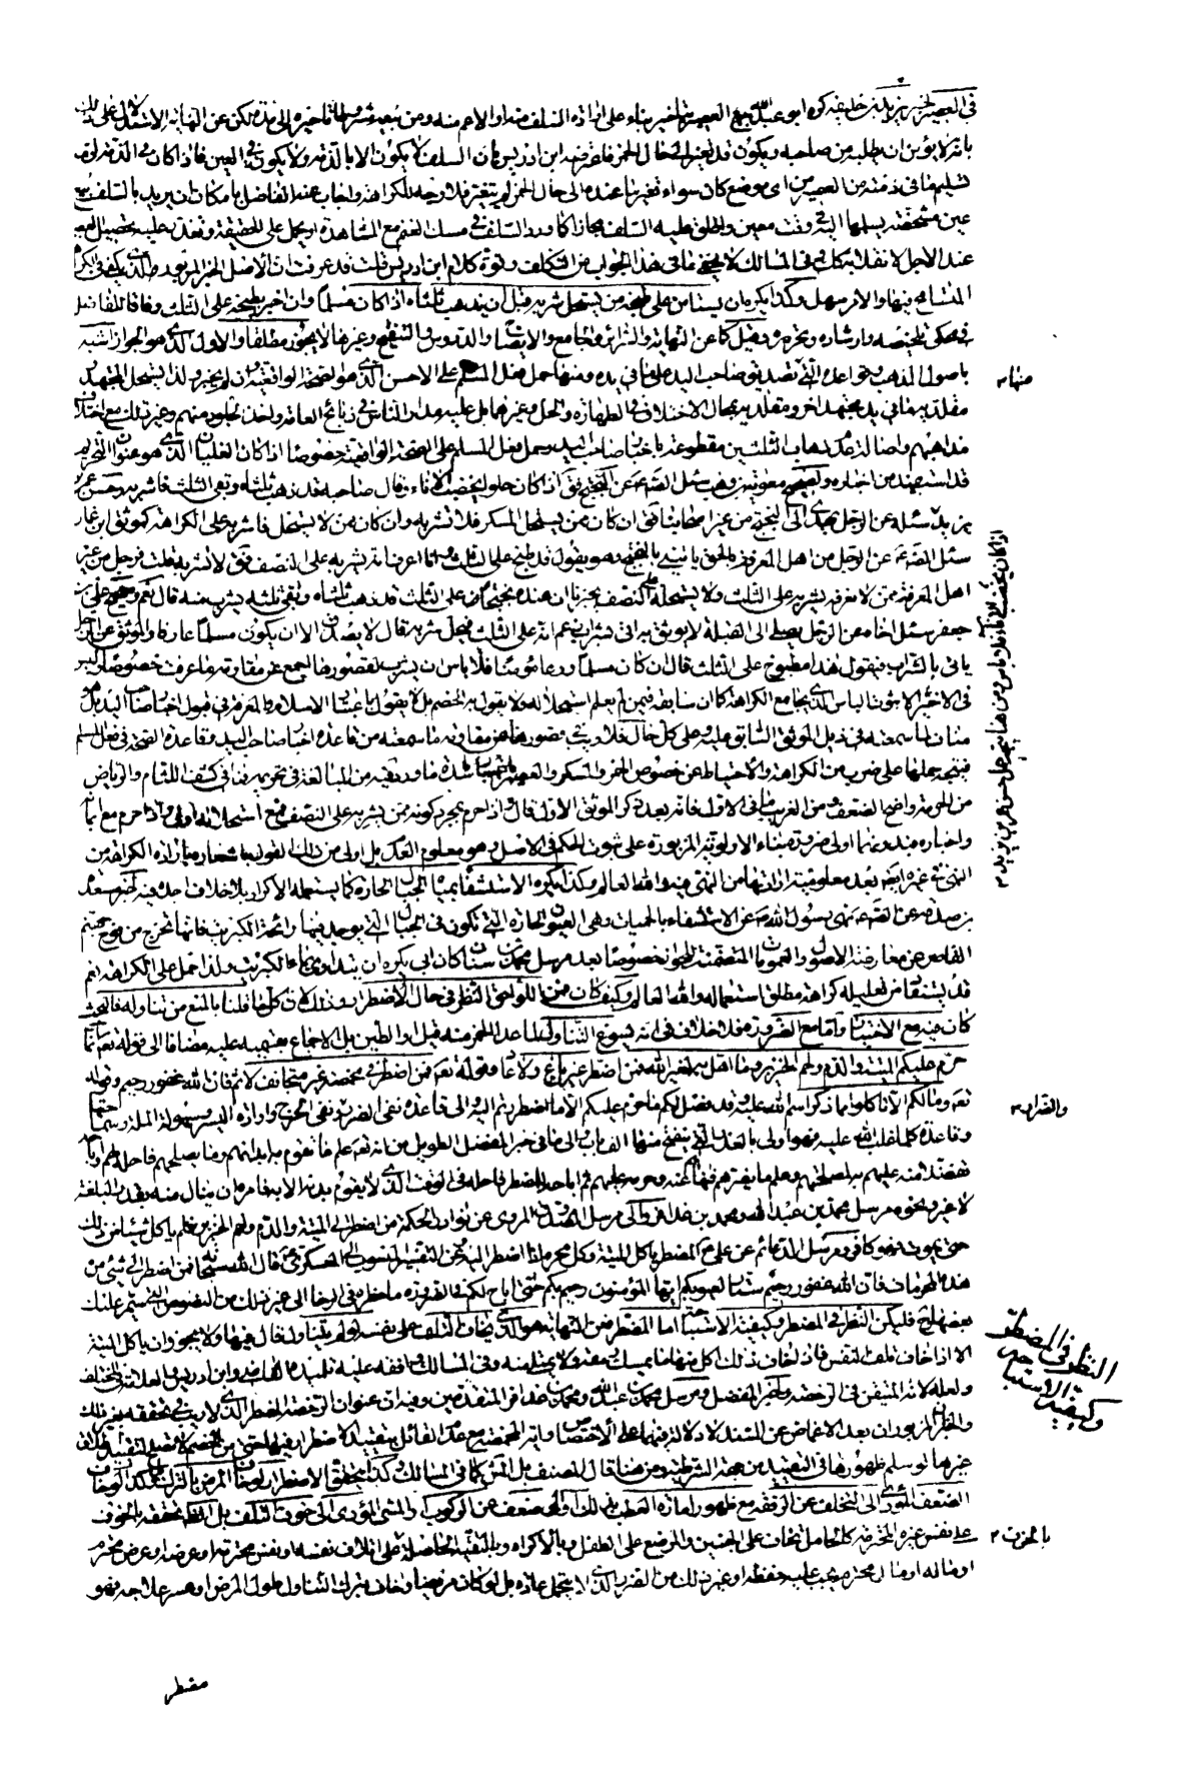 في العصير لخبر يزيد بن خليفة كره ابو عبد الله بيع العصير بتأخير بناء على ارادة السلف منه او الاعم منه ومن
بانه لا يؤمن ان يطلبه من صاحبه ويكون قد تغير الى حال الخمر فاعترضه ابن ادريس بان السلف لا يكون الا بالذمة ولا يكون في العين فاذا كان في الذمة
تسليم ما في ذمته من العصير من اى موضع كان سواء تغير ما عنده الى حال الخمر او لم يتغير فلا وجه للكراهة واجاب عنه الفاضل بامكان ان يريد بالسلف بيع
عين مشخصة يسلمها اليه في وقت معين واطلق عليه السلف مجازا كما ورد السلف في مسك الغنم مع المشاهدة او يحمل على الحقيقة وتعذر عليه تحصيل العصير
عند الاجل لانقلاب كله وفي المسالك لا يخفى ما في هذا الجواب من التكلف وقوة كلام ابن ادريس قلت قد عرفت ان الاصل الخبر المزبور
المتسامح فيها والامر سهل وكذا يكره ان يستأمن على طبخه من يستحل شربه قبل ان يذهب ثلثاه اذا كان مسلما وان اخبر بطبخه على الثلث وفاقا للفاضل
في محكى تلخيصه وارشاده وتحريره وقيل كما عن النهاية والسرائر والجامع والايضاح والدروس والتنقيح وغيرها لا يجوز مطلقا والاول الذي هو الجواز اشبه
باصول المذهب وقواعده التي تصديق صاحب اليد على ما في يده ومنها حمل فعل المسلم على الاحسن الذي هو الصحة الواقعية
مقلد به ما في يد مجتهد اخر ومقلديه بحال الاختلاف في الطهارة والحل وغيرهما بل عليه مدار الناس في ذبائح العامة واخذ الجلود منهم وغير ذلك مع اختلاف
مذاهبهم واصالة عدم ذهاب الثلثين مقطوعة باخبار صاحب اليد وحمل فعل المسلم على الصحة الواقعية خصوصا اذا كان الغليان الذي هو عنوان التحريم
قد استفيد من اخباره ولصحيح معوية بن وهب سئل الصم عن البختج فق اذا كان حلوا يخضب الاناء وقال صاحبه قد ذهب ثلثاه وبقى الثلث فاشربه وحسن عمر
بن يزيد سئله عن الرجل يهدى الى البختج من غير اصحابنا فق ان كان ممن يستحل المسكر فلا تشربه وان كان ممن لا يستحل فاشربه على الكراهة كموثق ابن عمار
سئل الصم عن الرجل من اهل المعرفة بالحق يأتيني بالبختج وهو يقول قد طبخ على الثلث وانا اعرف انه يشربه على النصف فق لا تشربه قلت فرجل من غير
اهل المعرفة ممن لا نعرفه يشربه على الثلث ولا يستحله على النصف يخبرنا ان عنده بختجا على الثلث قد ذهب ثلثاه وبقى ثلثه يشرب منه قال نعم وصحيح على بن
جعفر سئل اخاه عن الرجل يصلى الى القبلة لا يوثق به اتى بشراب يزعم انه على الثلث فيحل شربه قال لا يصدق الا ان يكون مسلما عارفا والموثق عن الرجل
يأتى بالشراب فيقول هذا مطبوخ على الثلث قال ان كان مسلما ورعا مؤمنا فلا بأس ان يشرب لقصورها اجمع عن مقاومة ما عرفت خصوصا وليس
في الاخير الا ثبوت البأس الذي يجامع الكراهة كما ان سابقه فيمن لم يعلم استحلاله ولا يقول به الخصم بل لا يقول باعتبار الاسلام والمعرفة في قبول اخبار صاحب اليد بل هو
مناف لما سمعته في ذيل الموثق السابق عليه وعلى كل حال فلا ريب في قصورها عن مقاومة ما سمعته من قاعدة اخبار صاحب اليد وقاعدة الصحة في فعل المسلم
فيتجه حملها على ضرب من الكراهة والاحتياط عن خصوص الخمر والمسكر والعصير
من الحرمة واضح الضعف ومن الغريب ما في الاول فانه بعد ذكر الموثق الاول قال واذا حرم بمجرد كونه ممن يشربه على النصف فمع استحلاله اولى
واخباره بنده ضرورة بناء الاولوية المزبورة على ثبوت الحكم في الاصل وهو معلوم العدم بل اولى من ذلك القول باشعاره بارادة الكراهة من
النهى في غيره ايضا بعد معلومية ارادتها من النهى فيه والله العالم وكذا يكره الاستشفاء بمياه الجبال الحارة كما يستعمله الاكراد بلا خلاف اجده فيه لخبر مسعدة
بن صدقة عن الصم نهى رسول الله ص عن الاستشفاء بالحميات وهى العيون الحارة التي تكون في الجبال التي يوجد فيها رائحة الكبريت فانها تخرج من فوح جهنم
القاصر عن معارضة الاصول والعمومات المتضمنة للجواز خصوصا بعد مرسل محمد بن سنان كان ابى يكره ان يتداوى بماء الكبريت ولذا حمل على الكراهة نعم
قد يستفاد من تعليله كراهة مطلق استعماله والله العالم وكيف كان فمن اللواحق النظر في حال الاضطرار وذلك لان كل ما قلنا بالمنع من تناوله فالبحث
كان فيه مع الاختيار واما مع الضرورة فلا خلاف في انه يسوغ التناول لما عدا الخمر منه قيل او الطين بل الاجماع بقسميه عليه مضافا الى قوله تعم انما
حرم عليكم الميتة والدم ولحم الخنزير وما اهل به لغير الله فمن اضطر غير باغ ولا عاد وقوله تعم فمن اضطر في مخمصة غير متجانف لاثم فان الله غفور رحيم وقوله
تعم وما لكم الا تأكلوا مما ذكر اسم الله عليه وقد فصل لكم ما حرم عليكم الا ما اضطررتم اليه والى قاعدة نفى الضرر ونفى الحرج وارادة اليسر وسهولة الملة وسماحتها
وقاعدة كلما غلب الله عليه فهو اولى بالعذر التي ينفتح منها الف باب والى ما في خبر المفضل الطويل من انه تعم علم ما تقوم به ابدانهم وما يصلحهم فاحله لهم واباحه
تفضلا منه عليهم به لمصلحتهم وعلم ما يضرهم فنهاهم عنه وحرمه عليهم ثم اباحه للمضطر فاحله في الوقت الذي لا يقوم بدنه الا به فامره ان ينال منه بقدر البلغة
لا غير ونحوه مرسل محمد بن عبد الله ومحمد بن عذافر والى مرسل الصدوق المروى عن نوادر الحكمة من اضطر الى الميتة والدم ولحم الخنزير فلم يأكل شيئا من ذلك
حتى يموت فهو كافر ومرسل الدعائم عن على ع المضطر يأكل الميتة وكل محرم اذا اضطر اليه وعن التفسير المنسوب الى العسكرى ع قال الله سبحانه فمن اضطر الى شيء من
هذه المحرمات فان الله غفور رحيم ستار لعيوبكم ايها المؤمنون رحيم بكم حتى اباح لكم في الضرورة ما حظره في الرخا الى غير ذلك من النصوص التي ستمر عليك
بعضها وح فليكن النظر في المضطر وكيفية الاستباحة اما المضطر فعن النهاية هو الذي يخاف التلف على نفسه لو لم يتناول قال فيها ولا يجوز ان يأكل الميتة
الا اذا خاف تلف النفس فاذا خاف ذلك اكل منها ما يمسك رمقه ولا يمتلئ منه وفي المسالك وافقه عليه تلميذه القاضى وابن ادريس والعلامة في المختلف
ولعله لانه المتيقن في الرخصة ولخبر المفضل ومرسل محمد بن عبد الله ومحمد بن عذافر المتقدمين وفيه ان عنوان الرخصة المضطر الذي لا ريب في تحققه بغير ذلك
والخبران المزبوران بعد الاغماض عن السند لا دلالة فيهما على الاختصاص وآية المخمصة مع عدم القائل بتقييد الاضطرار فيها
غيرها لو سلم ظهورها في التقييد من جهة الشرطية ومن هنا قال المصنف بل المش كما في المسالك وكذا يتحقق الاضطرار لو خاف المرض بالترك وكذا لو خاف
الضعف المؤدى الى التخلف عن الرفقة مع ظهور امارة العطب بذلك او الى ضعف عن الركوب او المشى المؤدى الى خوف التلف بل الظ تحققه بالخوف
على نفس غيره المحترمة كالحامل تخاف على الجنين والمرضع على الطفل وبالاكراه وبالتقية الحاصلة على اتلاف نفسه او نفس محترمة او عرضه او عرض محترم
او ماله او مال محترم يجب عليه حفظه او غير ذلك من الضرر الذي لا يتحمل عادة بل لو كان مريضا وخاف بترك التناول طول المرض او عسر علاجه فهو
منها
اذا كان يخضب الاناء فلا بأس ومن هنا يتجه حمل حسن عمر بن يزيد
والضرار
النظر في المضطر
وكيفية الاستباحة
مضطر